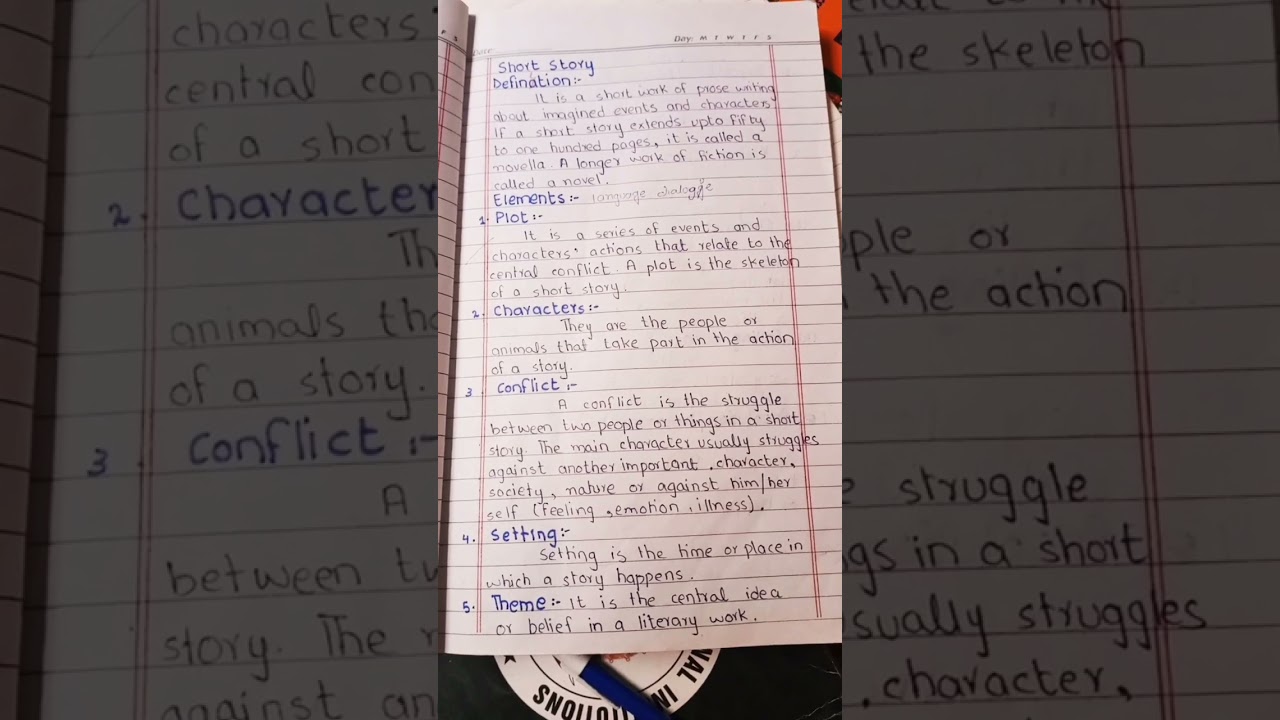 Date:
Day: M T W T F S
Short Story
Defination:-
It is a short work of prose writing
about imagined events and characters
If a short story extends upto fifty
to one hundred pages, it is called a
novella. A longer work of fiction is
called a novel.
Elements:- language dialogue
1. Plot:-
It is a series of events and
characters' actions that relate to the
central conflict. A plot is the skeleton
of a short story.
2. Characters:-
They are the people or
animals that take part in the action
of a story.
3. Conflict:-
A conflict is the struggle
between two people or things in a short
story. The main character usually struggles
against another important character,
society, nature or against him/her
self (feeling, emotion, illness).
4. Setting:-
Setting is the time or place in
which a story happens.
5. Theme:- It is the central idea
or belief in a literary work.